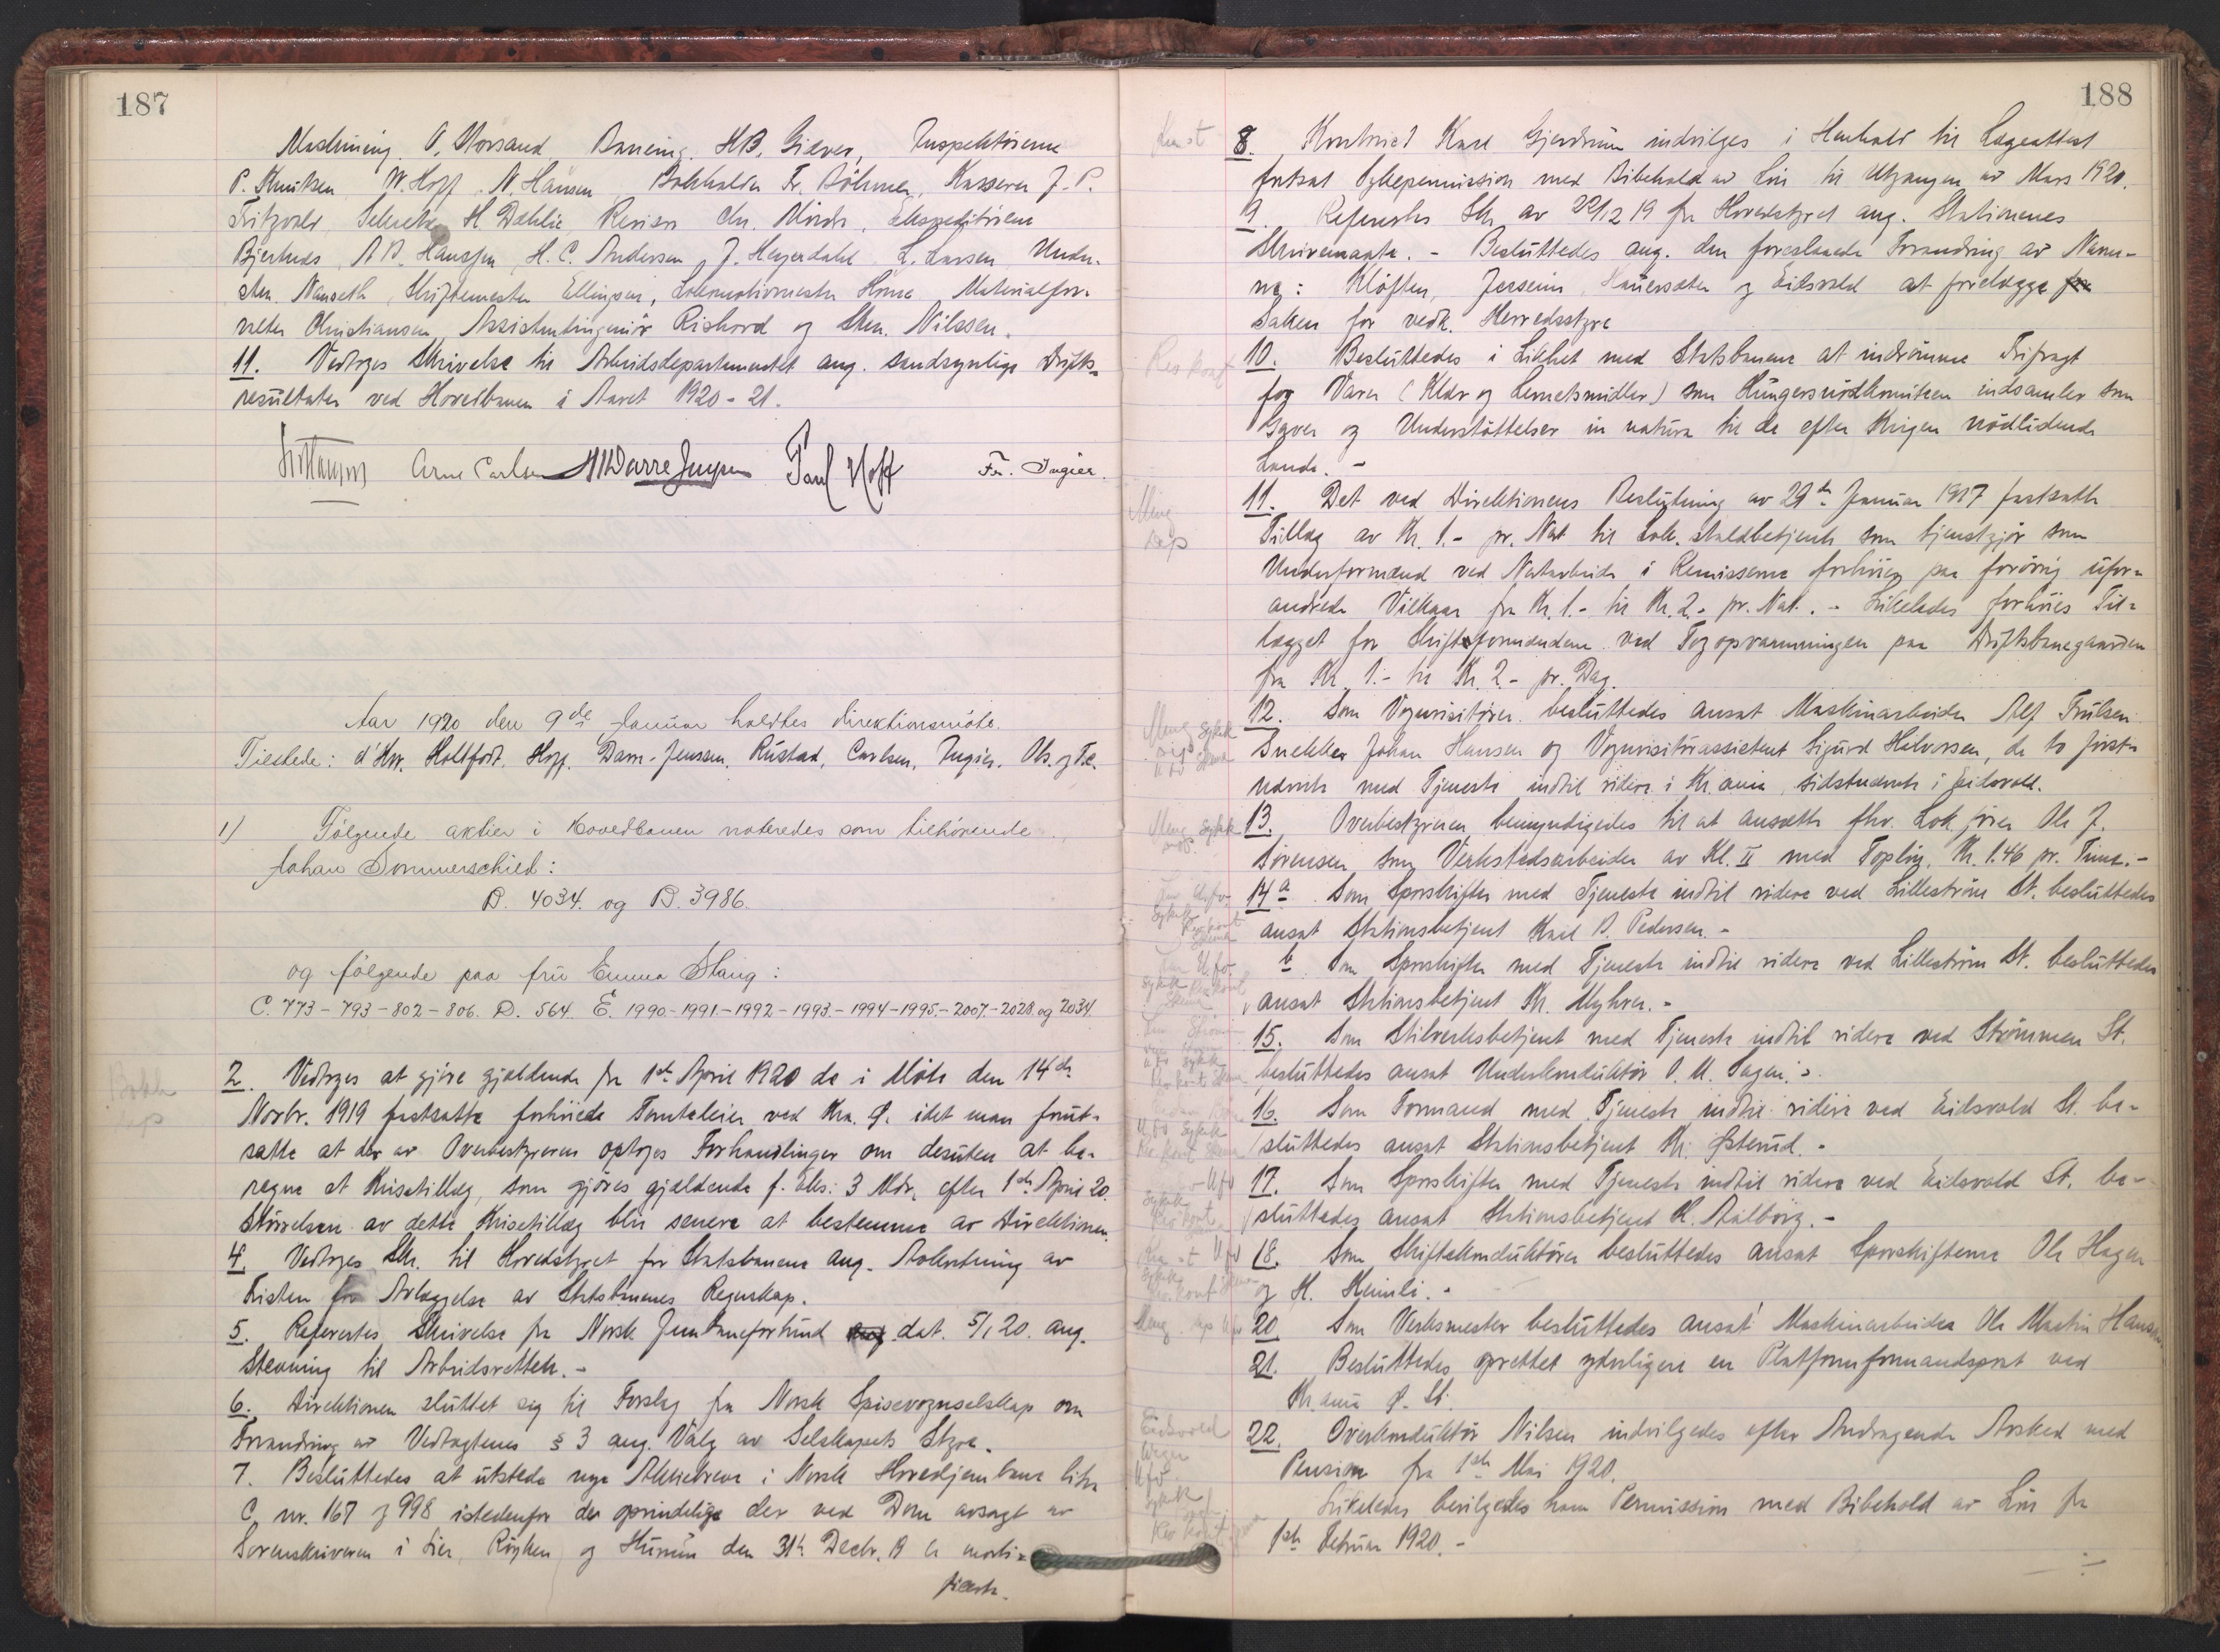 187
Maskining. O. Storsand Baneing. H.B. Giæver, Inspektörerne
P. Knutsen W. Hopf N. Hansen, Bokholder Fr. Böhmer, Kasserer J. P.
Fritzvold, Sekretær H. Dæhlie, Revisor Chr. , Ekspeditörene
Bjertnes, A. B. Hanssen, H. C. Andersen, J. Heyerdahl L. Larsen, Under-
sten. Nauseth, Skiftemester Ellingsen, Lokomotivmester Materialfor-
valter Christiansen, Assistentingeniör Rishord og Sten. Nilssen.
11. Vedtoges Skrivelse til Arbeidsdepartementet ang. sandsynlige Drifts-
resultater ved Hovedbanen i Aaret 1920-21.
Arne Carlsen Paul Hoff Fr. Ingier.
Aar 1920 den 9de Januar holdtes direktionsmöte.
Tilstede: d'Hrr. Holtfodt, Hoff, Darre-Jenssen, Rustad, Carlsen, Ingier. Obs. og T.c.
1) Fölgende aktier i Hovedbanen noteredes som tilhörende
Johan Sommerschield:
B. 4034. og B. 3986.
og fölgende paa fru Emma Stang:
C. 773-793-802-806. D. 564. E. 1990-1991-1992-1993-1994-1995-2007-2028. og 2034.
2. Vedtoges at gjöre gjældende fra 1ste April 1920 de i Möte den 14de
Novbr. 1919 fastsatte forhöiede Tomteleier ved Kra. Ø. idet man forut-
satte at der av Overbestyreren optoges Forhandlinger om desuten at be-
regne et Krisetillæg, som gjöres gjældende f. Eks: 3 Mdr. efter 1ste April 20.
Störrelsen av dette Krisetillæg blir senere at bestemme av Direktionen.
4. Vedtoges Skr. til Hovedstyret for Statsbanene ang. Avkortning av
Fristen for Avlæggelse av Statsbanenes Regnskap.
5. Refereertes Skrivelse fra Norsk Jernbaneforbund dat. 5/1 20. ang.
Stevning til Arbeidsretten.-
6. Direktionen sluttet sig til Forslag fra Norsk Spisevognselskap om
Forandring av Vedtægtenes § 3 ang. Valg av Selskapets Styre.
7. Besluttedes at utstede nye Aktiebreve i Norsk Hovedjernbane litra
C nr. 167 og 998 istedenfor de oprindelige der ved Dom avsagt av
Sorenskriveren i Lier, Röyken og Hurum den 31te Decbr. 19 er morti-
ficerte.
188
8. Kontorist Karl Gjerdrum indvilges i Henhold til Lægeattest
fortsat Sykepermission med Bibehold av Lön til Utgangen av Mars 1920.
9. Refererdes Skr. av 22/12 19 fra Hovedstyret ang. Stationenes
Skrivemaate.- Besluttedes ang. den foreslaaede Forandring av Navn-
ne: Klöften, Jessum, Hauersæter og Eidsvold at forelægge
Saken for vedk. Herredsstyre
10. Besluttedes i Likhet med Statsbanene at indrömme Frifragt
for Varer (Klær og Levnetsmidler) som Hungersnödkomiteen indsamler som
Gaver og Understöttelser in natura til de efter Krigen nödlidende
Lande.-
11. Det ved Direktionens Beslutning av 29de Januar 1917 fastsatte
Tillæg av Kr. 1.- pr. Nat til Lok. staldbetjente som tjenestgjör som
Underformænd ved Natarbeide i Remisserne forhöies paa forövrig ufor-
andrede Vilkaar fra Kr. 1.- til Kr. 2.- pr. Nat.- Likeledes forhöies Til-
lægget for Skifteformændene ved Togopvarmningen paa Driftsbanegaarden
fra Kr. 1.- til Kr. 2.- pr. Dag.
12. Som Vognvisitörer besluttedes ansat Maskinarbeider Alf Trulsen
Snekker Johan Hansen og Vognvisitörassistent Sigurd Halvorsen, de to först-
nævnte med Tjeneste indtil videre i Kr.ania, sidstnævnte i Eidsvold.
13. Overbestyreren bemyndigedes til at ansætte fhv. Lok.förer Ole J.
Sörensen som Verkstedsarbeider av Kl. II med Toplön, Kr. 1.46 pr. Time.-
14 a. Som Sporskifter med Tjeneste indtil videre ved Lilleström St. besluttedes
ansat Stationsbetjent Karl B. Pedersen.-
b Som Sporskifter med Tjeneste indtil videre ved Lilleström St. besluttedes
ansat Stationsbetjent Kr. Myhrer.-
15. Som Stilverksbetjent med Tjeneste indtil videre ved Strömmen St.
besluttedes ansat Underkonduktör O. M. Fagen.-
16. Som Formand med Tjeneste indtil videre ved Eidsvold St. be-
sluttedes ansat Stationsbetjent Kr. Østerud.-
17. Som Sporskifter med Tjeneste indtil videre ved Eidsvold St. be-
sluttedes ansat Stationsbetjent K. Aalborg.-
18. Som Skiftekonduktörer besluttedes ansat Sporskifterne Ole Hagen
og H. Heimli.-
20 Som Verksmester besluttedes ansat Maskinarbeider Ole Martin Hansen.
21. Besluttedes oprettet yderligere en Platformformandspost ved
Kr.ania Ø. St.
22. Overkonduktör Nilsen indvilgedes efter Andragende Avsked med
Pension fra 1ste Mai 1920.
Likeledes bevilgedes ham Permission med Bibehold av Lön fra
1ste Februar 1920.-